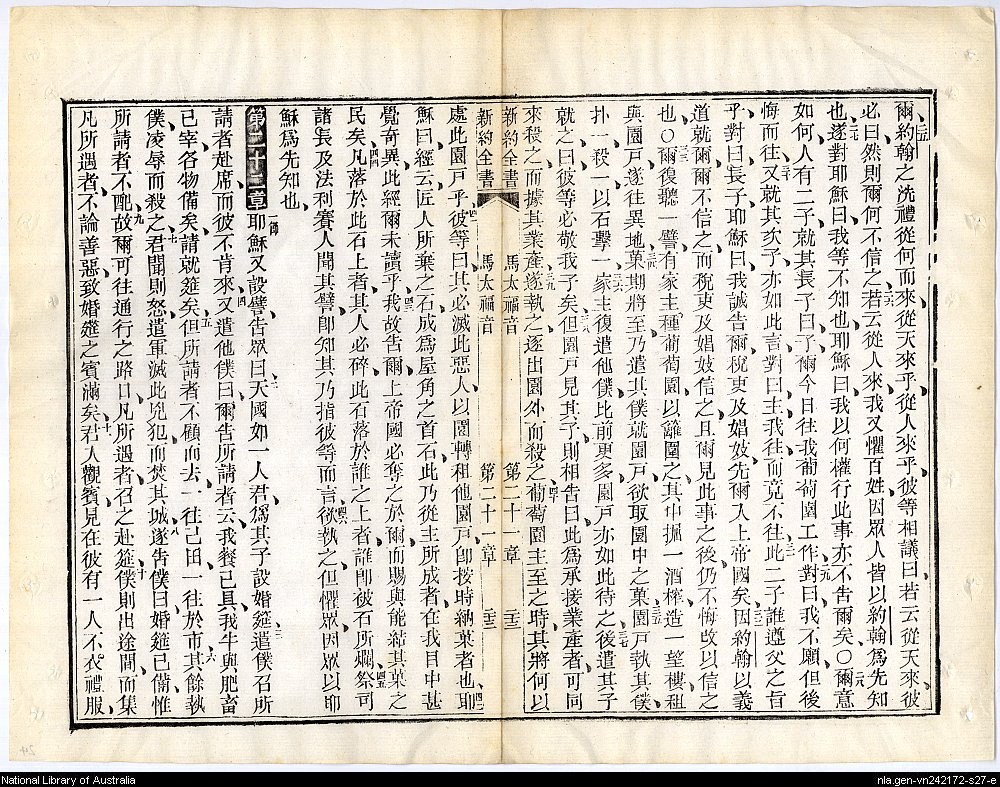 爾約翰之洗禮從何而來從天來乎從人來乎彼等相議曰若云從天來彼
必曰然則爾何不信之若云從人來我又懼百姓因眾人皆以約翰為先知
也遂對耶穌曰我等不知也耶穌曰我以何權行此事亦不告爾矣〇爾意
如何人有二子就其長子曰子爾今日往我葡萄園工作對曰我不願但後
悔而往又就其次子亦如此言對曰主我往而竟不往此二子誰遵父之旨
乎對曰長子耶穌曰我誠告爾稅吏及娼妓先爾入上帝國矣因約翰以義
道就爾爾不信之而稅吏及娼妓信之且爾見此事之後仍不悔改以信之
也〇爾復聽一譬有家主種葡萄園以籬圍之其中掘一酒榨造一望樓租
與園戶遂往異地菓期將至乃遣其僕就園戶欲取園中之菓園戶執其僕
扑一殺一以石擊一家主復遣他僕比前更多園戶亦如此待之後遣其子
就之曰彼等必敬我子矣但園戶見其子則相告曰此為承接業產者可同
來殺之而據其業產遂執之逐出園外而殺之葡萄園主至之時其將何以
新約全書 馬太福音 第二十一章 三三
新約全書 馬太福音 第二十一章
處此園戶乎彼等曰其必滅此惡人以園轉租他園戶卽按時納菓者也耶
穌曰經云匠人所棄之石成為屋角之首石此乃從主所成者在我目中甚
覺奇異此經爾未讀乎我故告爾上帝國必奪之於爾而賜與能結其菓之
民矣凡落於此石上者其人必碎此石落於誰之上者誰卽被石所爛祭司
諸長及法利賽人聞其譬卽知其乃指彼等而言欲執之但懼眾因眾以耶
穌為先知也
第二十二章 一節耶穌又設譬告眾曰天國如一人君為其子設婚筵遣僕召所
請者赴席而彼不肯來又遣他僕曰爾告所請者云我餐已具我牛與肥畜
已宰各物備矣請就筵矣但所請者不顧而去一往己田一往於市其餘執
僕凌辱而殺之君聞則怒遣軍滅此兇犯而焚其城遂告僕曰婚筵已備惟
所請者不配故爾可往通行之路口凡所遇者召之赴筵僕則出途間而集
凡所遇者不論善惡致婚筵之賓滿矣君入觀賓見在彼有一人不衣禮服
National Library of Australia
nla.gen-vn242172-s27-e